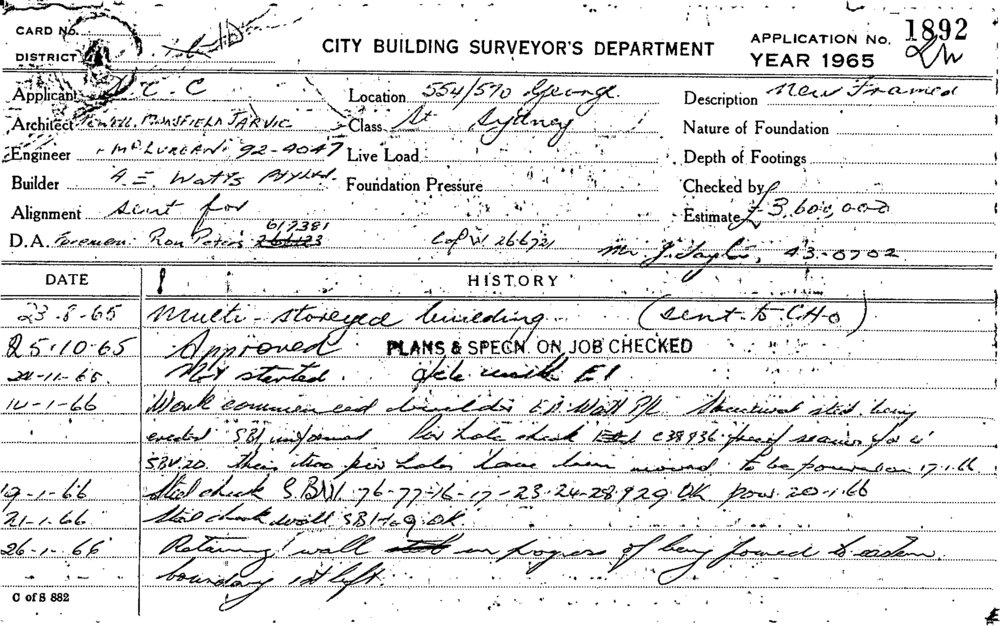 CARD No.
DISTRICT
CITY BUILDING SURVEYOR'S DEPARTMENT
APPLICATION No. 1892
YEAR 1965
Applicant C. C
Location 554/570 George
Description New Framed
Architect MANSFIELD JARVIC
Class St Sydney
Nature of Foundation
Engineer McLURCAN. 92-4047
Live Load
Depth of Footings
Builder A.E. Watts Pty Ltd.
Foundation Pressure
Checked by
Alignment sent for
Estimate £3,600,000
617381
D.A. Foreman: Ron Peters 266123
C of W 266721
Mr J. Taylor, 43-0702
DATE HISTORY
23-8-65 Multi-storeyed building (sent to CHO)
25-10-65 Approved PLANS & SPECN. ON JOB CHECKED
24-11-65. Not started.
14-1-66 Work commenced builder Watt P/L Structural steel being
erected Pier hole check
these two pier holes have been moved. To be poured on 17-1-66
19-1-66 Steel check 76-77-16-17-23-24-28 & 29 OK pour 20-1-66
21-1-66 Steel check wall OK.
26-1-66 Retaining wall in progress of being formed to eastern
boundary 1st left.
C of S 882